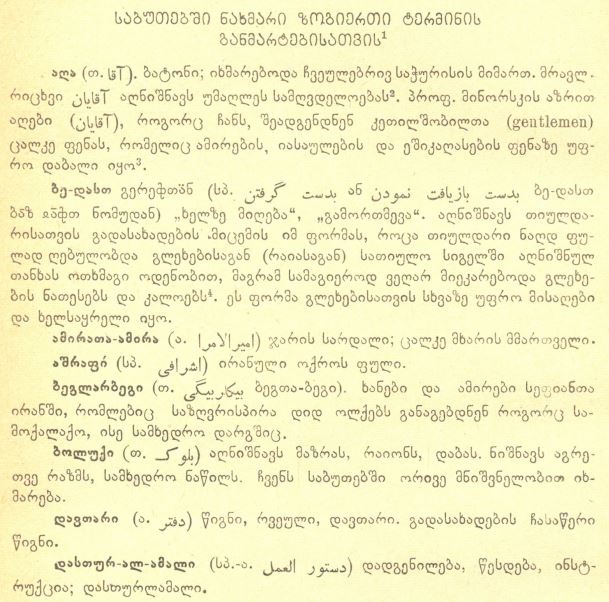 საბუთებში ნახმარი ზოგიერთი ტერმინის
განმარტებისათვის¹
აღა (თ. آقا). ბატონი; იხმარებოდა ჩვეულებრივ საჭურისის მიმართ. მრავლ.
რიცხვი آقایان აღნიშნავს უმაღლეს სამღვდელოებას². პროფ. მინორსკის აზრით
აღები (آقایان), როგორც ჩანს, შეადგენდნენ კეთილშობილთა (gentlemen)
ცალკე ფენას, რომელიც ამირების, იასაულების და ეშიკაღასების ფენაზე უფ-
რო დაბალი იყო³.
ბე-დასთ გერეფთან (სპ. بدست گرفتن ან بدست بازیافت نمودن ბე-დასთ
ბაზ აფთ ნომუდან) „ხელზე მიღება“, „გამორთმევა“. აღნიშნავს თიულდა-
რისათვის გადასახადების მიცემის იმ ფორმას, როცა თიულდარი ნაღდ ფუ-
ლად ღებულობდა გლეხებისაგან (რაიასაგან) სათიულო სიგელში აღნიშნულ
თანხას ოთხმაგი ოდენობით, მაგრამ სამაგიეროდ ვეღარ მიეკარებოდა გლეხე-
ბის ნათესებს და კალოებს⁴. ეს ფორმა გლეხებისათვის სხვაზე უფრო მისაღები
და ხელსაყრელი იყო.
ამირათა-ამირა (ა. امیرالامرا) ჯარის სარდალი; ცალკე მხარის მმართველი.
აშრაფი (სპ. اشرافی) ირანული ოქროს ფული.
ბეგლარბეგი (თ. بیکلربیگی ბეგთა-ბეგი). ხანები და ამირები სეფიანთა
ირანში, რომლებიც საზღვრისპირა დიდ ოლქებს განაგებდნენ როგორც სა-
მოქალაქო, ისე სამხედრო დარგშიც.
ბოლუქი (თ. بلوک) აღნიშნავს მაზრას, რაიონს, დაბას. ნიშნავს აგრე-
თვე რაზმს, სამხედრო ნაწილს. ჩვენს საბუთებში ორივე მნიშვნელობით იხ-
მარება.
დავთარი (ა. دفتر) წიგნი, რვეული, დავთარი. გადასახადების ჩასაწერი
წიგნი.
დასთურ-ალ-ამალი (სპ.-ა. دستور العمل) დადგენილება, წესდება, ინსტ-
რუქცია; დასთურლამალი.